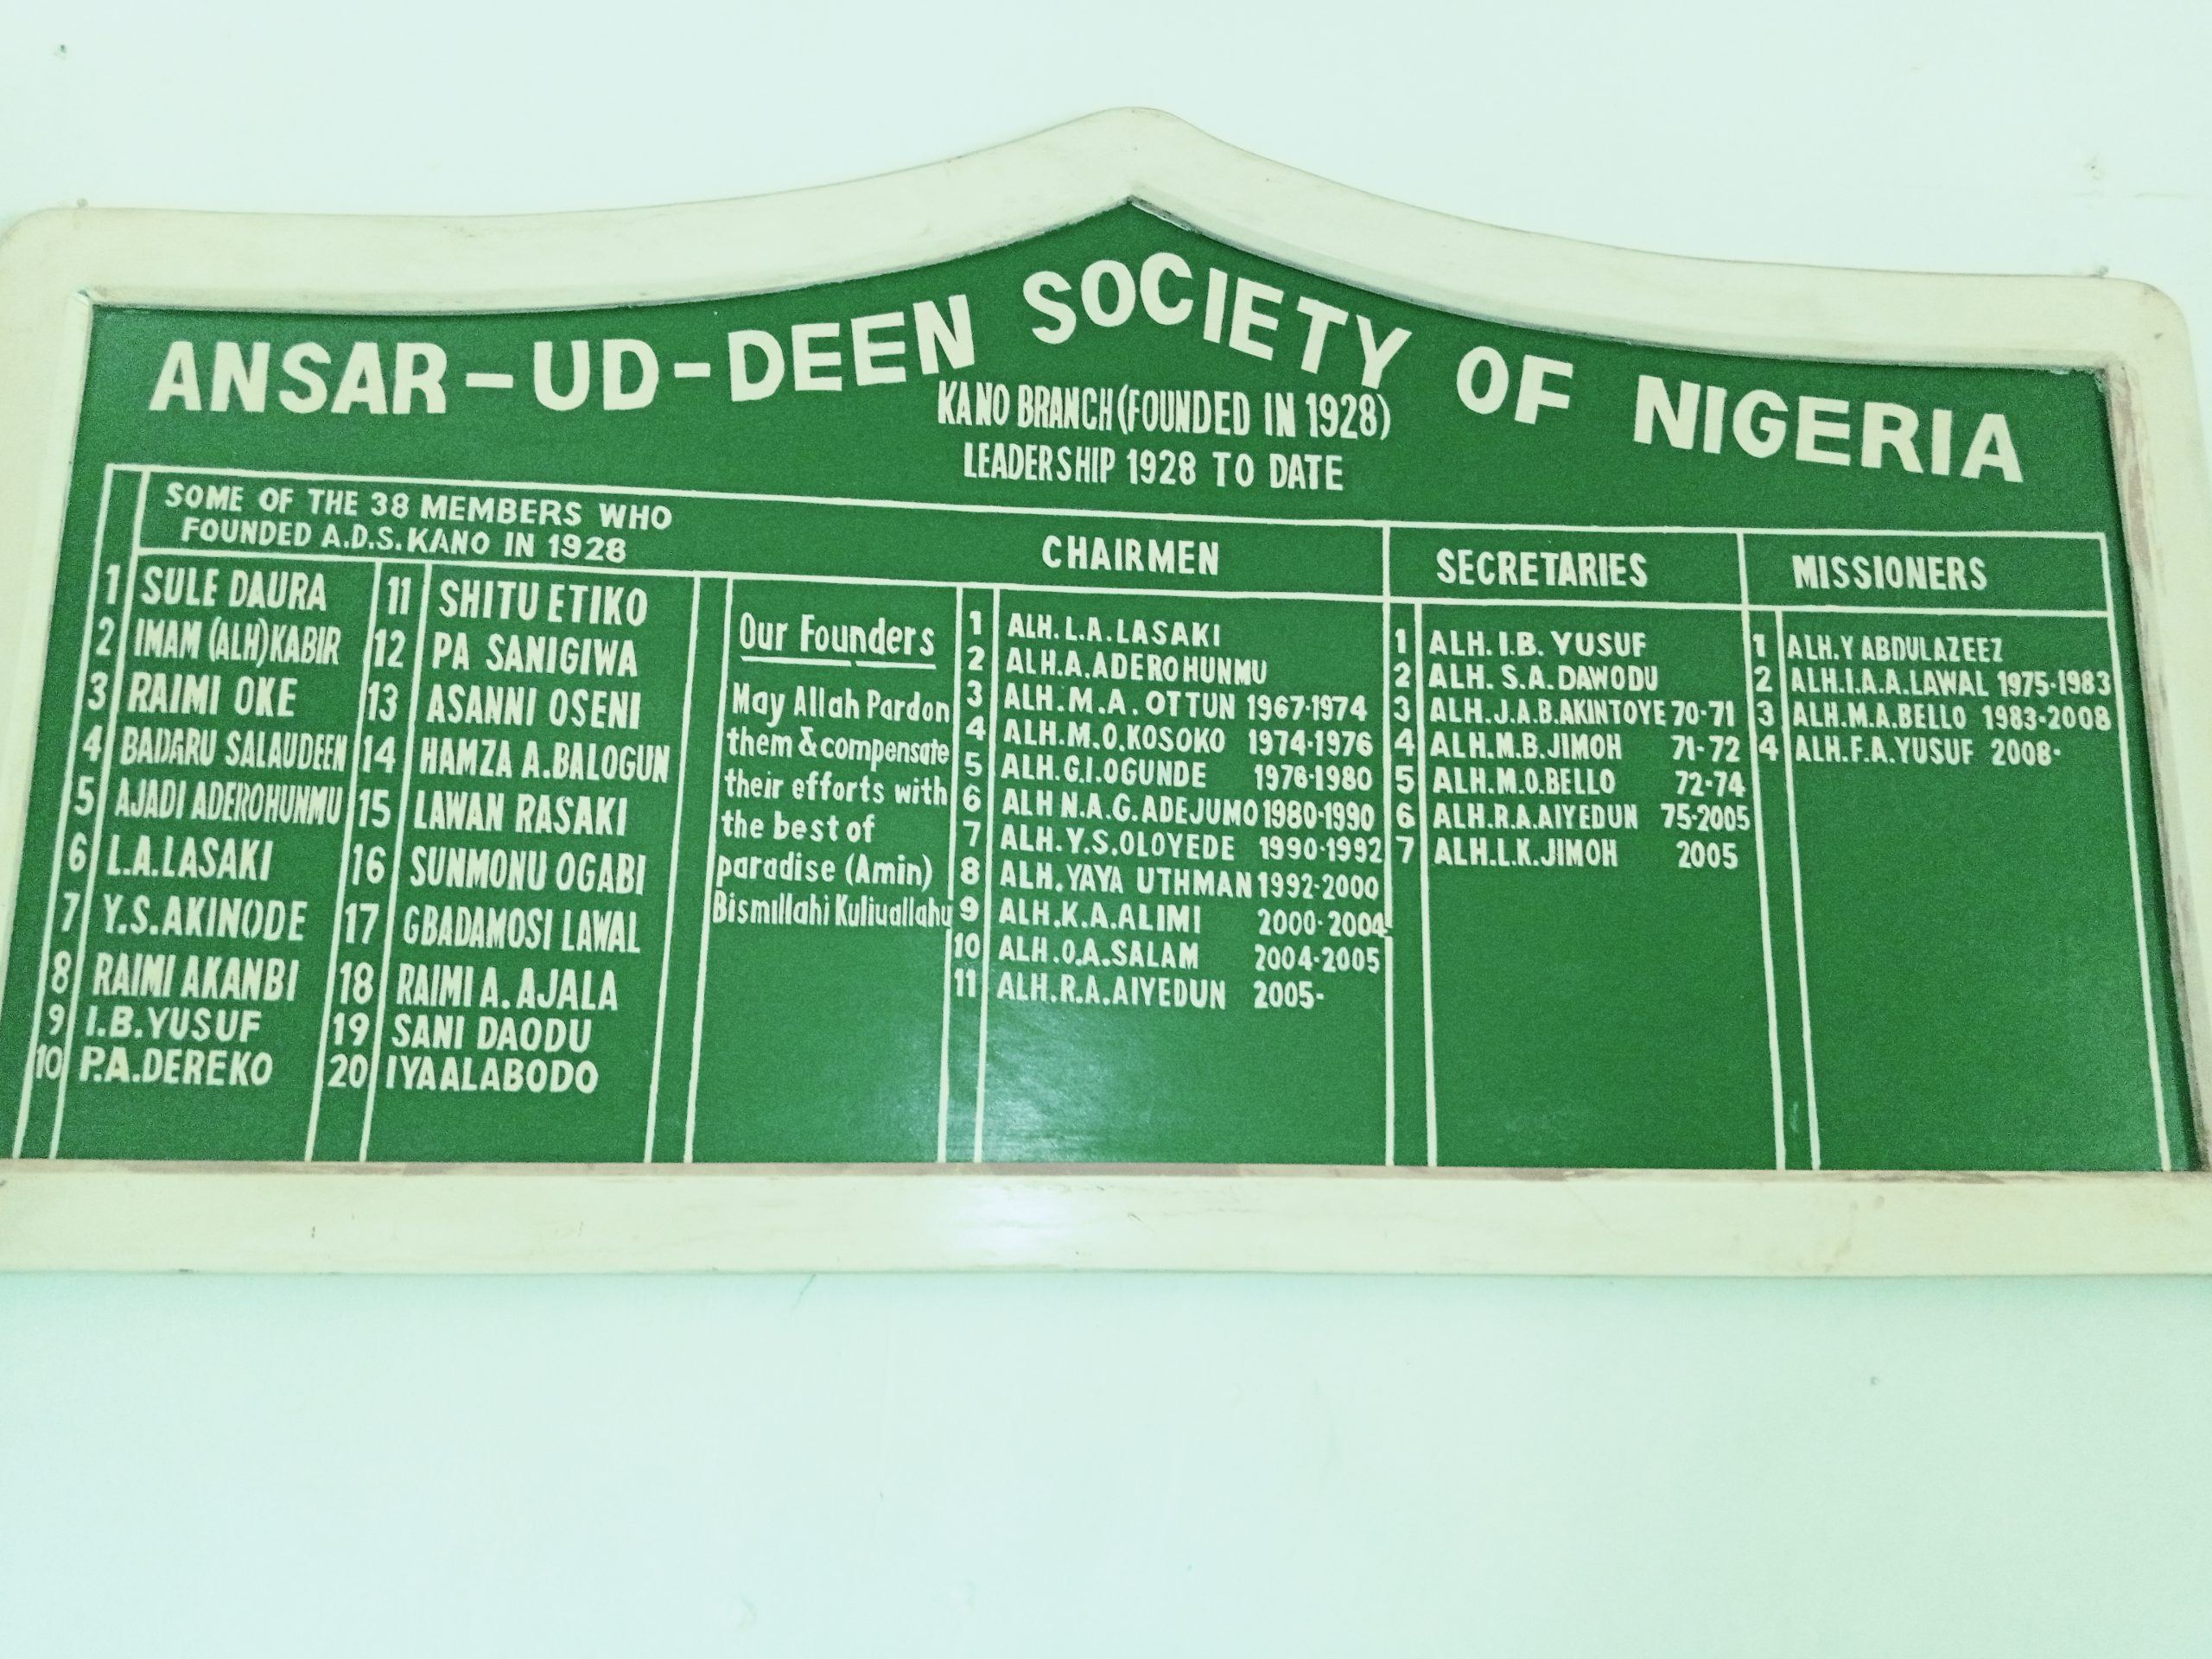 ANSAR-UD-DEEN SOCIETY OF NIGERIA
KANO BRANCH (FOUNDED IN 1928)
LEADERSHIP 1928 TO DATE
SOME OF THE 38 MEMBERS WHO
FOUNDED A.D.S. KANO IN 1928
1 SULE DAURA
2 IMAM (ALH) KABIR
3 RAIMI OKE
4 BADARU SALAUDEEN
5 AJADI ADEROHUNMU
6 L.A. LASAKI
7 Y.S. AKINODE
8 RAIMI AKANBI
9 I.B. YUSUF
10 P.A. DEREKO
11 SHITU ETIKO
12 PA SANIGIWA
13 ASANNI OSENI
14 HAMZA A. BALOGUN
15 LAWAN RASAKI
16 SUNMONU OGABI
17 GBADAMOSI LAWAL
18 RAIMI A. AJALA
19 SANI DAODU
20 IYAALABODO
Our Founders
May Allah Pardon
them & compensate
their efforts with
the best of
paradise (Amin)
Bismillahi Kuliuallahu
CHAIRMEN
1 ALH. L.A. LASAKI
2 ALH. A. ADEROHUNMU
3 ALH. M. A. OTTUN 1967-1974
4 ALH. M.O. KOSOKO 1974-1976
5 ALH. G.I. OGUNDE 1976-1980
6 ALH N.A.G. ADEJUMO 1980-1990
7 ALH. Y.S. OLOYEDE 1990-1992
8 ALH. YAYA UTHMAN 1992-2000
9 ALH. K.A. ALIMI 2000-2004
10 ALH. O.A. SALAM 2004-2005
11 ALH. R.A. AIYEDUN 2005-
SECRETARIES
1 ALH. I.B. YUSUF
2 ALH. S.A. DAWODU
3 ALH. J.A.B. AKINTOYE 70-71
4 ALH. M.B. JIMOH 71-72
5 ALH. M.O. BELLO 72-74
6 ALH. R.A. AIYEDUN 75-2005
7 ALH. L.K. JIMOH 2005
MISSIONERS
1 ALH. Y ABDULAZEEZ
2 ALH. I.A.A. LAWAL 1975-1983
3 ALH. M.A. BELLO 1983-2008
4 ALH. F.A. YUSUF 2008-